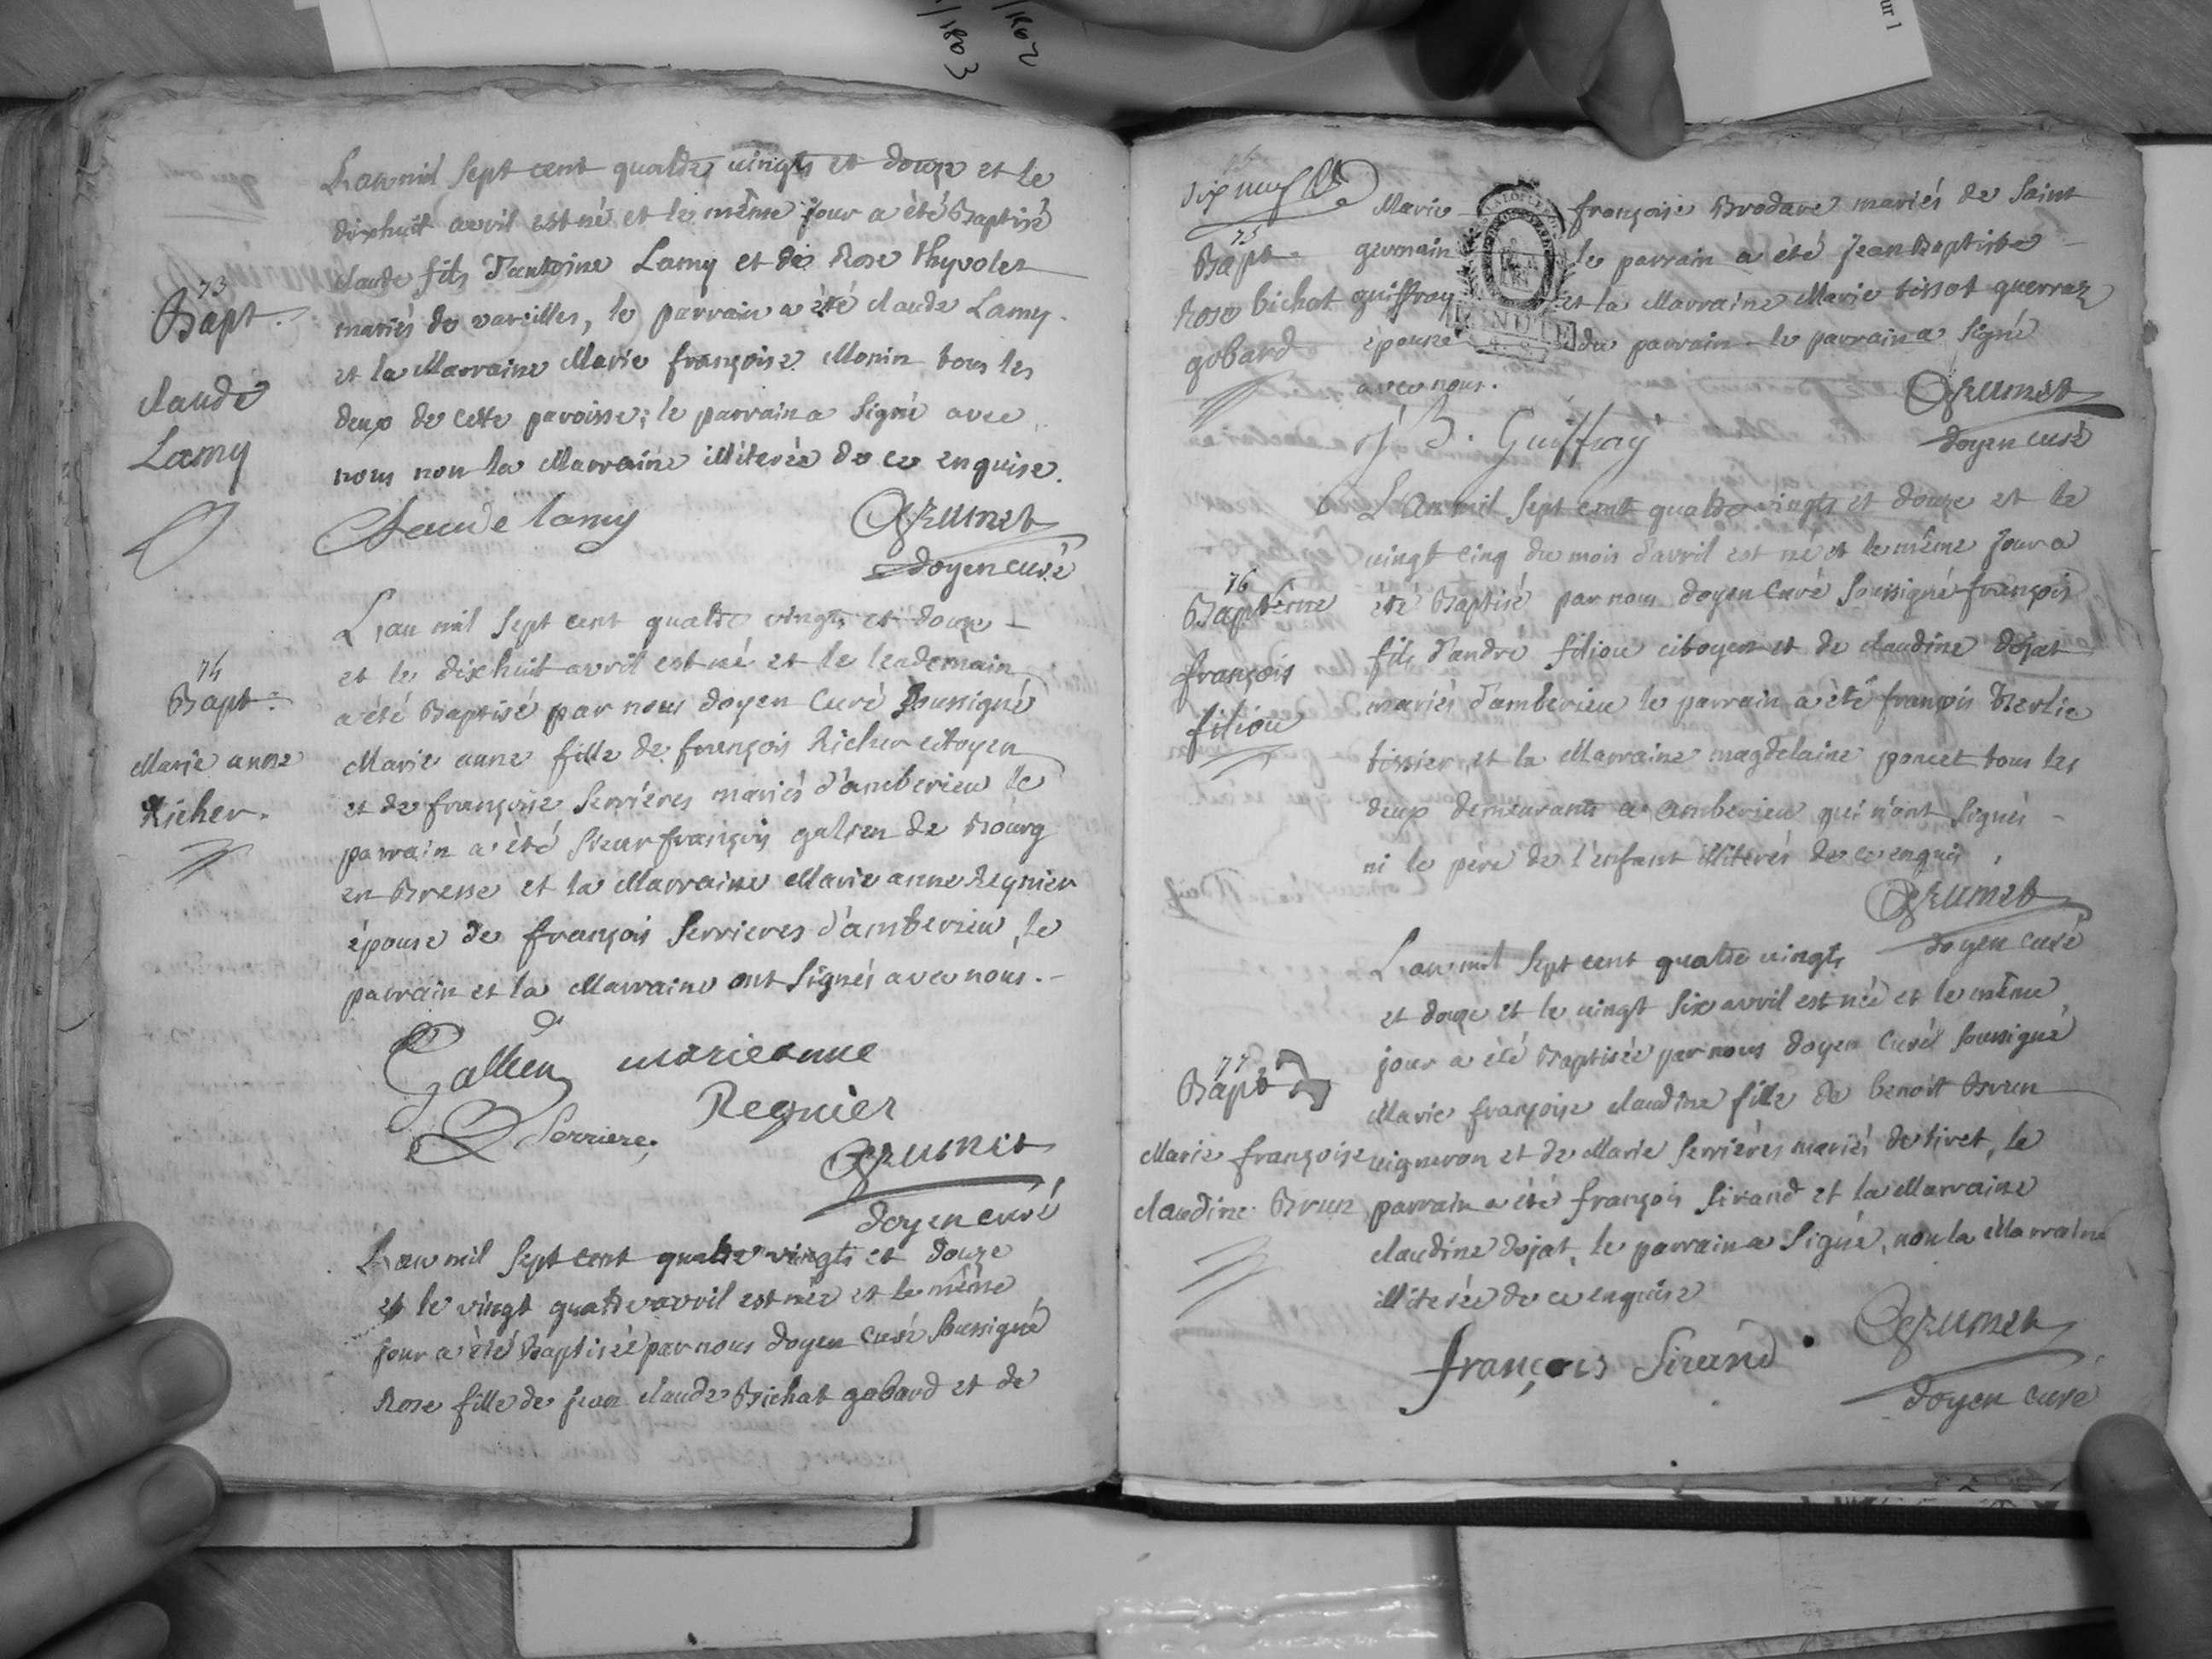 L'an mil sept cent quatre vingts et douze et le
dixhuit avril est né et le même jour a été Baptisé
claude fils d'antoine Lamy et de Rose Thyvolet
mariés de vareilles, le parrain a été claude Lamy
et la Marraine Marie françoise Monin tous les
deux de cette paroisse; le parrain a signé avec
nous non la Marraine illiterée de ce enquise.
73
Bapt.
claude
Lamy
Claude lamy
Grumet
doyen curé
L'an mil sept cent quatre vingts et douze
et le dixhuit avril est né et le lendemain
a été Baptisé par nous doyen Curé soussigné
Marie anne fille de françois Richer citoyen
et de françoise Serrières mariés d'amberieu le
parrain a été sieur françois galien de Bourg
en Bresse et la Marraine Marie anne Regnier
épouse de françois Serrieres d'amberieu, le
parrain et la Marraine ont signés avec nous.
74
Bapt.
Marie anne
Richer.
Gallien marieanne
Regnier
Serriere
Grumet
doyen curé
L'an mil sept cent quatre vingts et douze
et le vingt quatre avril est née et le même
jour a été Baptisée par nous doyen Curé soussigné
Rose fille de jean claude Bichat gobard et de
dix neuf
75
Bapt.
Rose bichat
gobard
Marie françoise Brodave mariés de saint
germain le parrain a été jean Baptiste
guiffray et la Marraine Marie tissot guerraz
épouse du parrain le parrain a signé
avec nous.
Grumet
doyen curé
J B. Guiffray
L'an mil sept cent quatre vingts et douze et le
vingt cinq du mois d'avril est né et le même jour a
été Baptisé par nous doyen Curé soussigné françois
fils d'andré filiou citoyen et de claudine dojat
mariés d'amberieu le parrain a été françois Berlie
tissier et la Marraine magdelaine poncet tous les
deux demeurants a amberieu qui n'ont signés
ni le père de l'enfant illiterés de ce enquis
76
Baptême
françois
filiou
Grumet
doyen curé
L'an mil sept cent quatre vingts
et douze et le vingt six avril est née et le même
jour a été Baptisée par nous doyen Curé soussigné
Marie françoise claudine fille de benoit Brun
vigneron et de Marie Serrières mariés de tiret, le
parrain a été françois Sirand et la Marraine
claudine dojat, le parrain a signé, non la Marraine
illiterée de ce enquise
77
Bapt
Marie françoise
claudine Brun
françois Sirand
Grumet
doyen curé